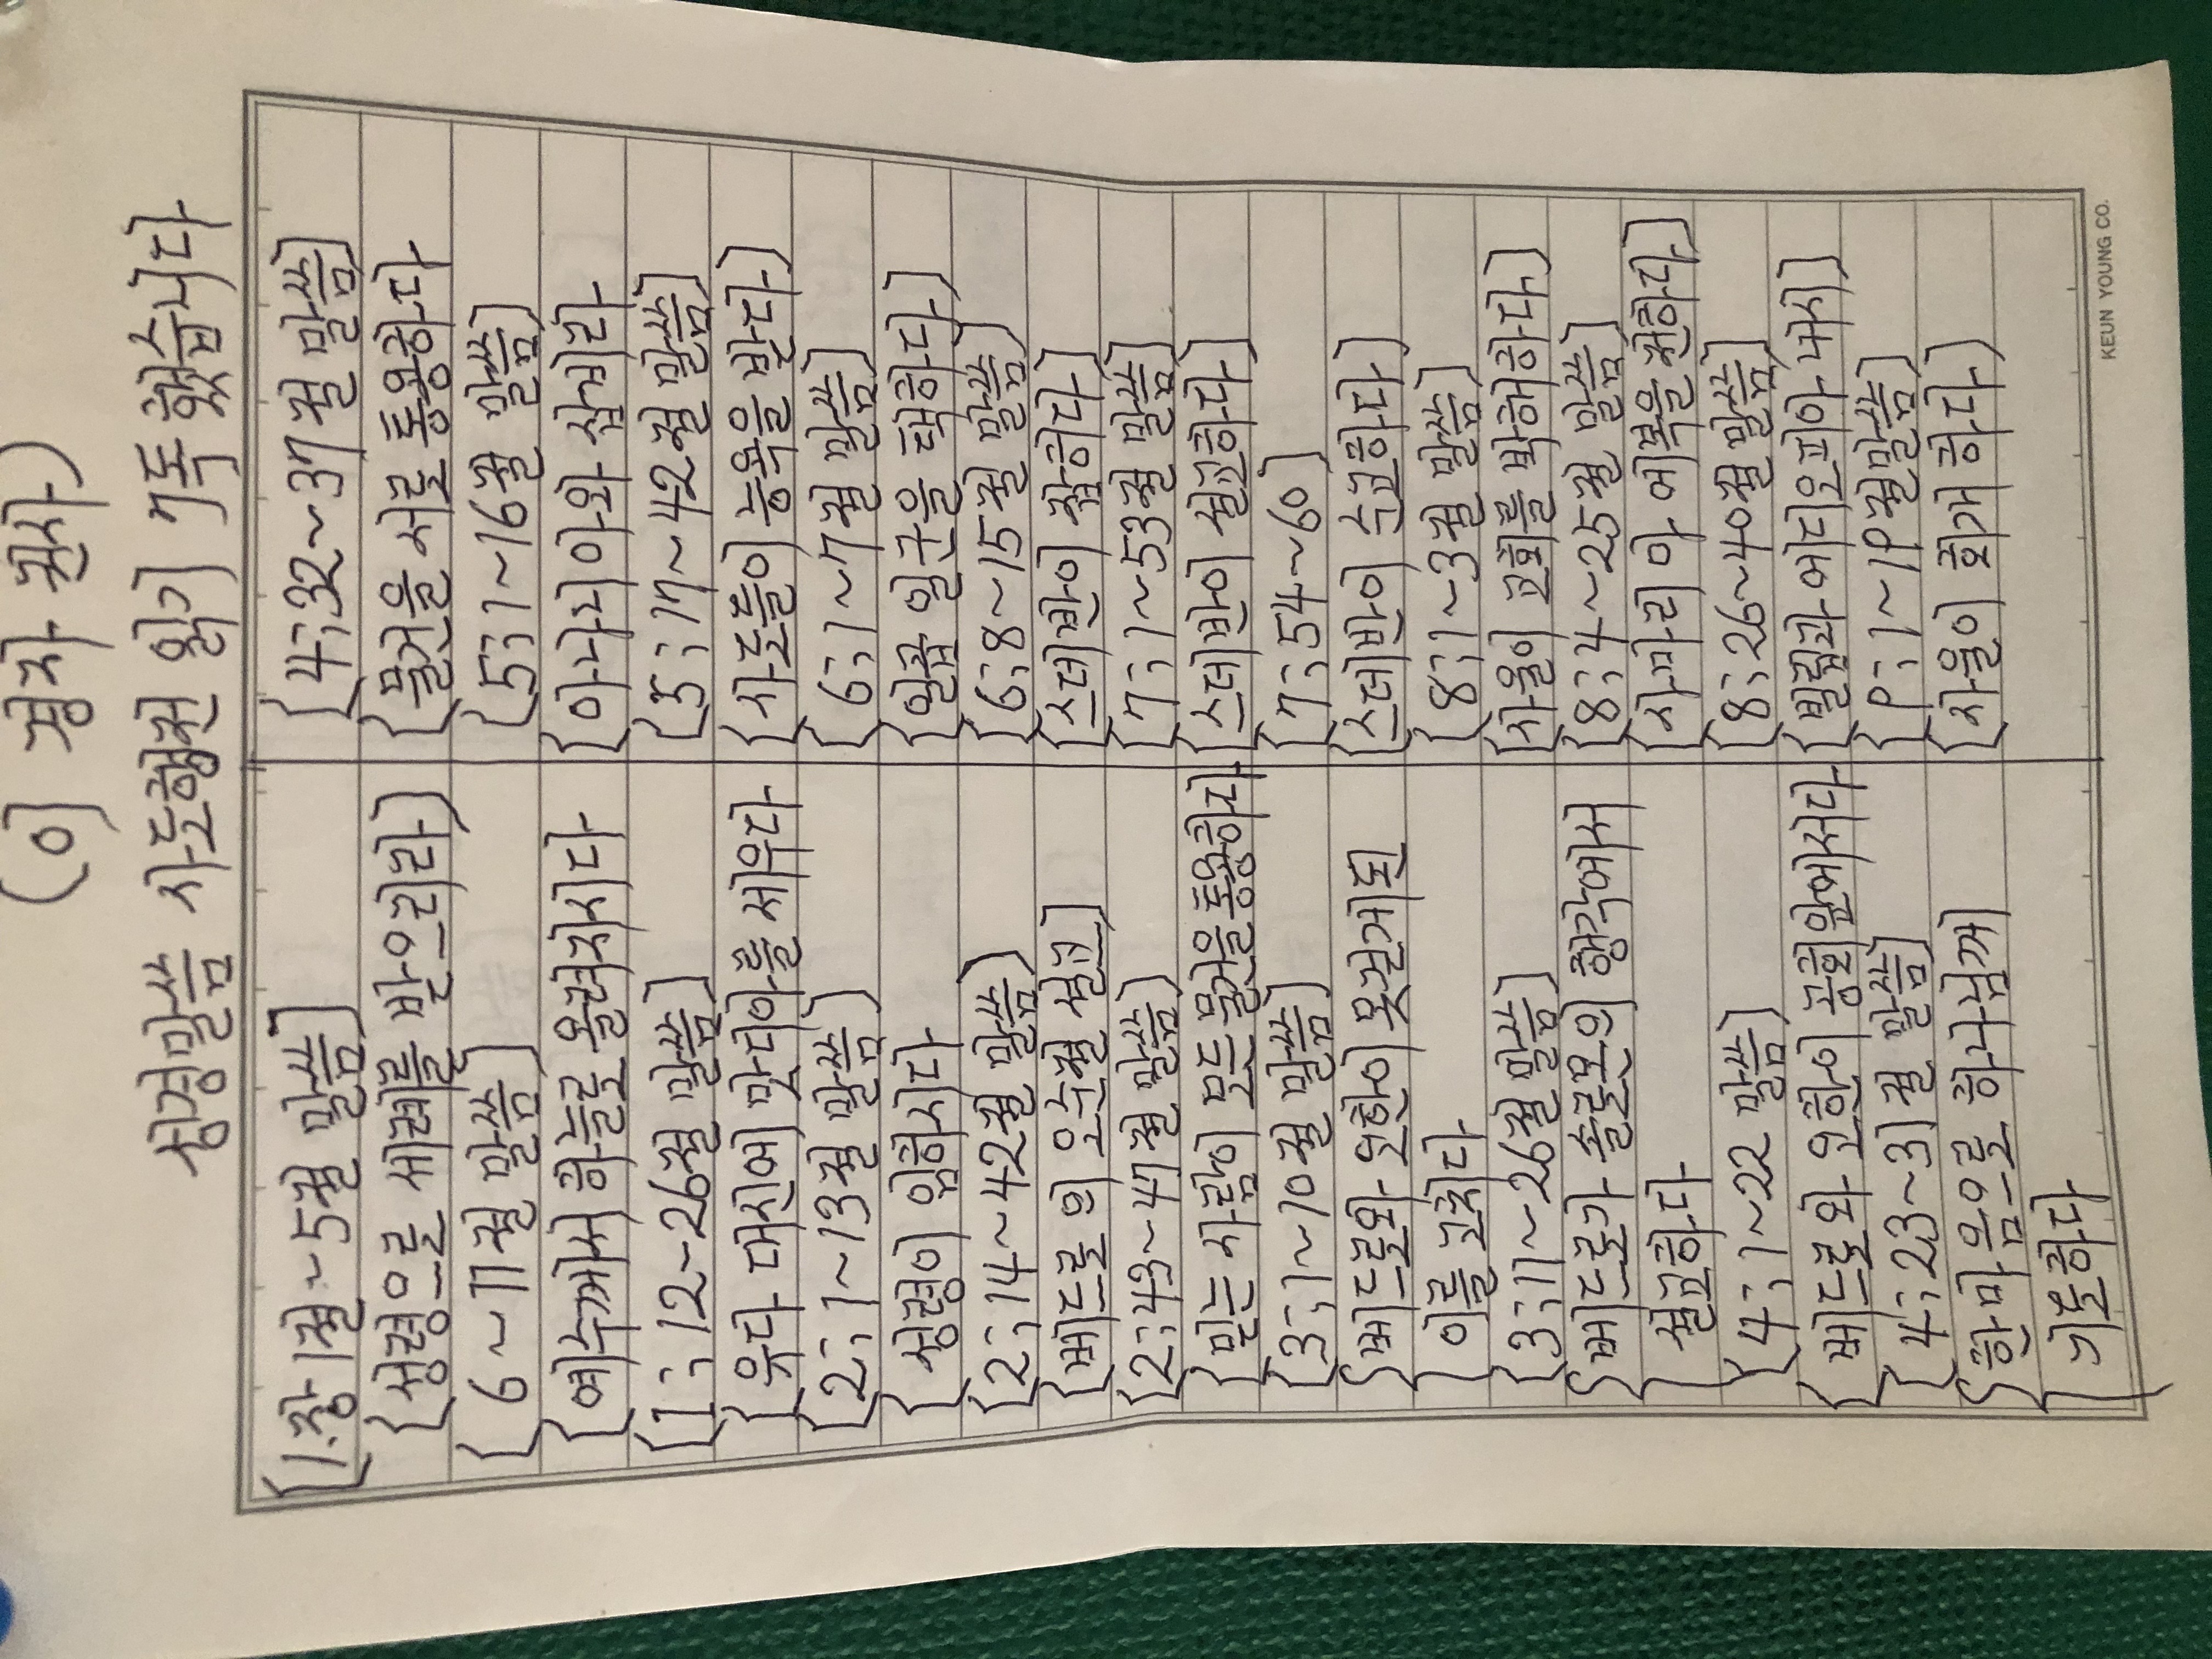 (이 경자 권사)
성경말씀 사도행전 읽기 7독 했습니다
(1장 1절~5절 말씀)
(성령으로 세례를 받으리라)
(6~11절 말씀)
(예수께서 하늘로 올려지시다
(1;12~26절 말씀)
(유다 대신에 맛디아를 세우다
(2;1~13절 말씀)
(성령이 임하시다
(2;14~42절 말씀)
(베드로의 오순절 설교)
(2;43~47절 말씀)
(믿는 사람이 모든 물건을 통용하다
(3;1~10절 말씀)
(베드로와 요한이 못걷게된
이를 고치다
(3;11~26절 말씀)
(베드로가 솔로몬의 행각에서
설교하다
(4;1~22 말씀)
(베드로와 요한이 공회앞에서다
(4;23~31절 말씀)
(한마음으로 하나님께
기도하다
(4;32~37절 말씀)
(물건을 서로 통용하다
(5;1~16절 말씀)
(아나니아와 삽비라
(5;17~42절 말씀)
(사도들이 능욕을 받다)
(6;1~7절 말씀)
(일곱 일군을 택하다)
(6;8~15절 말씀)
(스데반이 잡히다)
(7;1~53절 말씀)
(스데반이 설교하다)
(7;54~60)
(스데반이 순교하다)
(8;1~3절 말씀)
(사울이 교회를 박해하다)
(8;4~25절 말씀)
(사마리아에 복을 전하다)
(8;26~40절 말씀)
(빌립과 에디오피아 내시)
(9;1~19절 말씀)
(사울이 회개하다)
KEUN YOUNG CO.